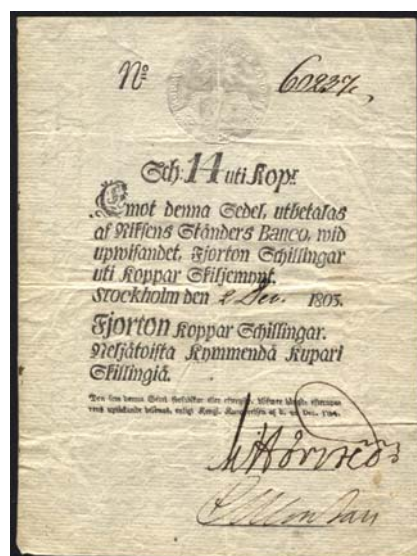 No 60237.
Sch: 14 uti Kopr
Emot denna Sedel, utbetalas
af Riksens Ständers Banco, wid
upwisandet, Fjorton Schillingar
uti Koppar Skiljemynt.
Stockholm den 2 Dec. 1803.
Fjorton Koppar Schillingar.
Neljätoista Kymmendä Kupari
Skillingiä.
Den som denna Sedel förfalskar eller efterapar